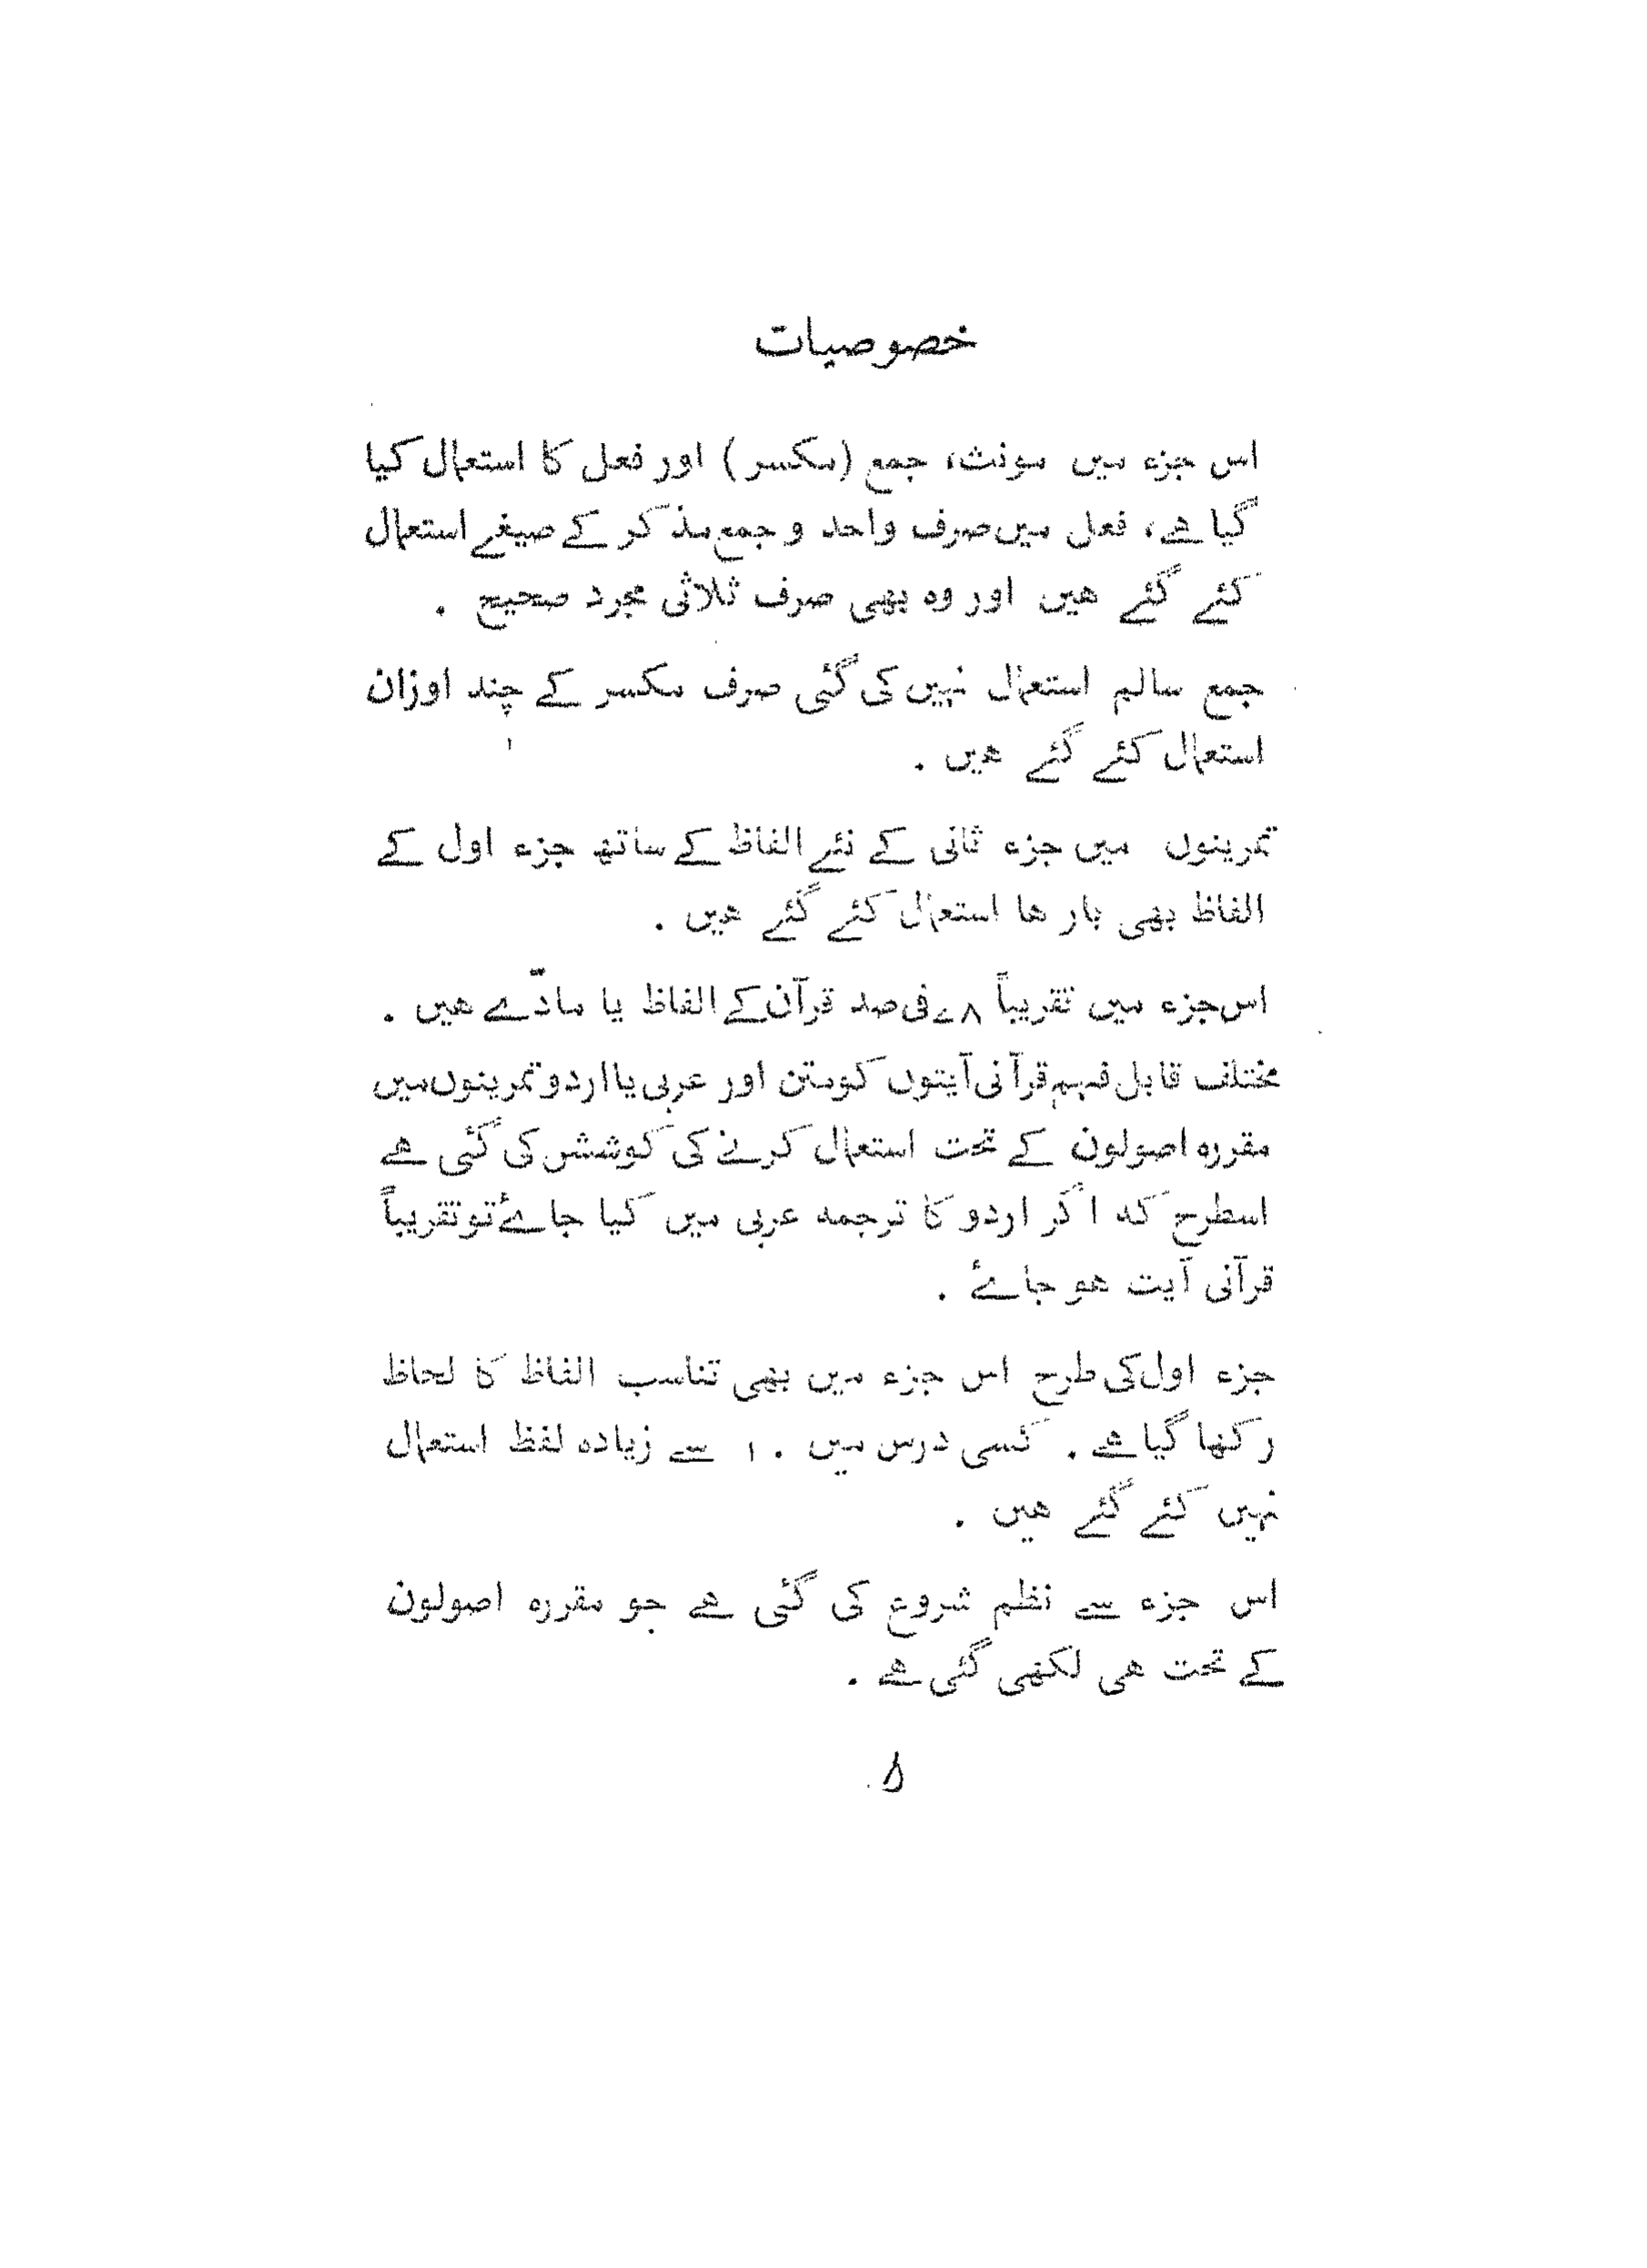 خصوصیات
اس جزء میں مونث، جمع (مکسر) اور فعل کا استعمال کیا
گیا ھے، فعل میں صرف واحد و جمع مذکر کے صیغے استعمال
کئے گئے ھیں اور وہ بھی صرف ثلاثی مجرد صحیح .
جمع سالم استعمال نہیں کی گئی صرف مکسر کے چند اوزان
استعمال کئے گئے ھیں .
تمرینوں میں جزء ثانی کے نئے الفاظ کے ساتھ جزء اول کے
الفاظ بھی بار ھا استعمال کئے گئے ھیں .
اس جزء میں تقریباً ۷۸ فی صد قرآن کے الفاظ یا مادّے ھیں .
مختلف قابل فہم قرآنی آیتوں کو متن اور عربی یا اردو تمرینوں میں
مقررہ اصولون کے تحت استعمال کرنے کی کوشش کی گئی ھے
اسطرح کہ اگر اردو کا ترجمہ عربی میں کیا جائے تو تقریباً
قرآنی آیت ھو جائے .
جزء اول کی طرح اس جزء میں بھی تناسب الفاظ کا لحاظ
رکھا گیا ھے . کسی درس میں ۱۰ سے زیادہ لفظ استعمال
نہیں کئے گئے ھیں .
اس جزء سے نظم شروع کی گئی ھے جو مقررہ اصولون
کے تحت ھی لکھی گئی ھے .